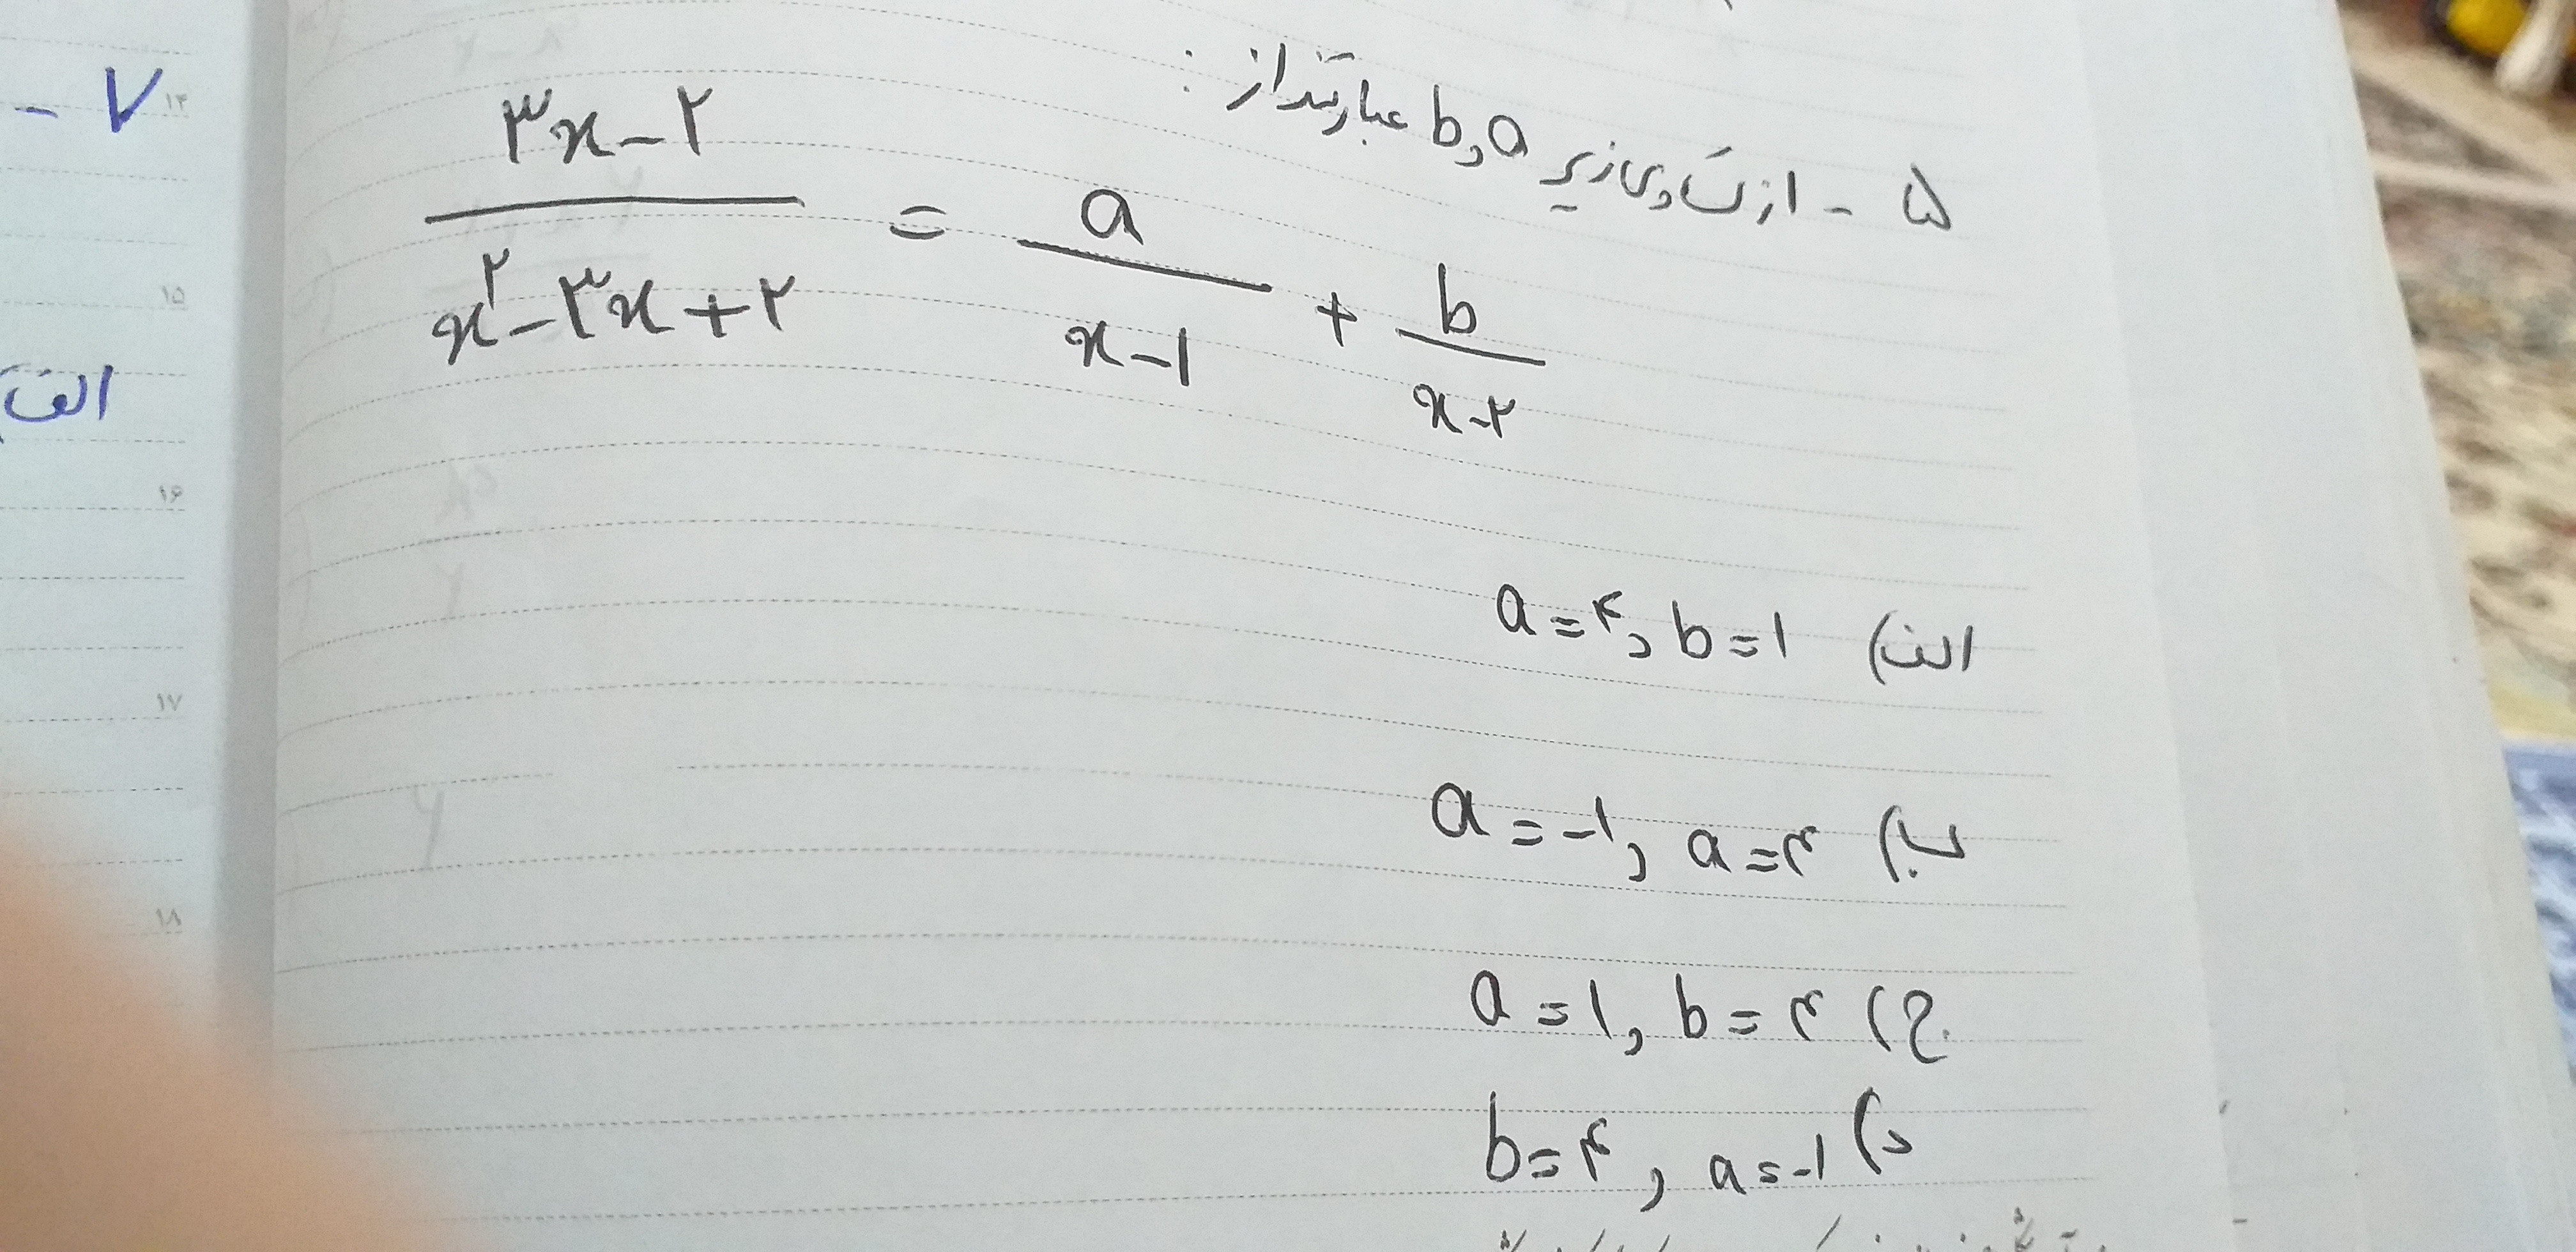 ۵ - از تساوی زیر a و b عبارتند از :
۳x-۲ / x^۲-۳x+۲ = a / x-۱ + b / x-۲
الف) a=۴ و b=۱
ب) a=-۱ و a=۴
ج) a=۱ و b=۴
د) b=۴ و a=-۱
- ۷
الف
۱۴
۱۵
۱۶
۱۷
۱۸